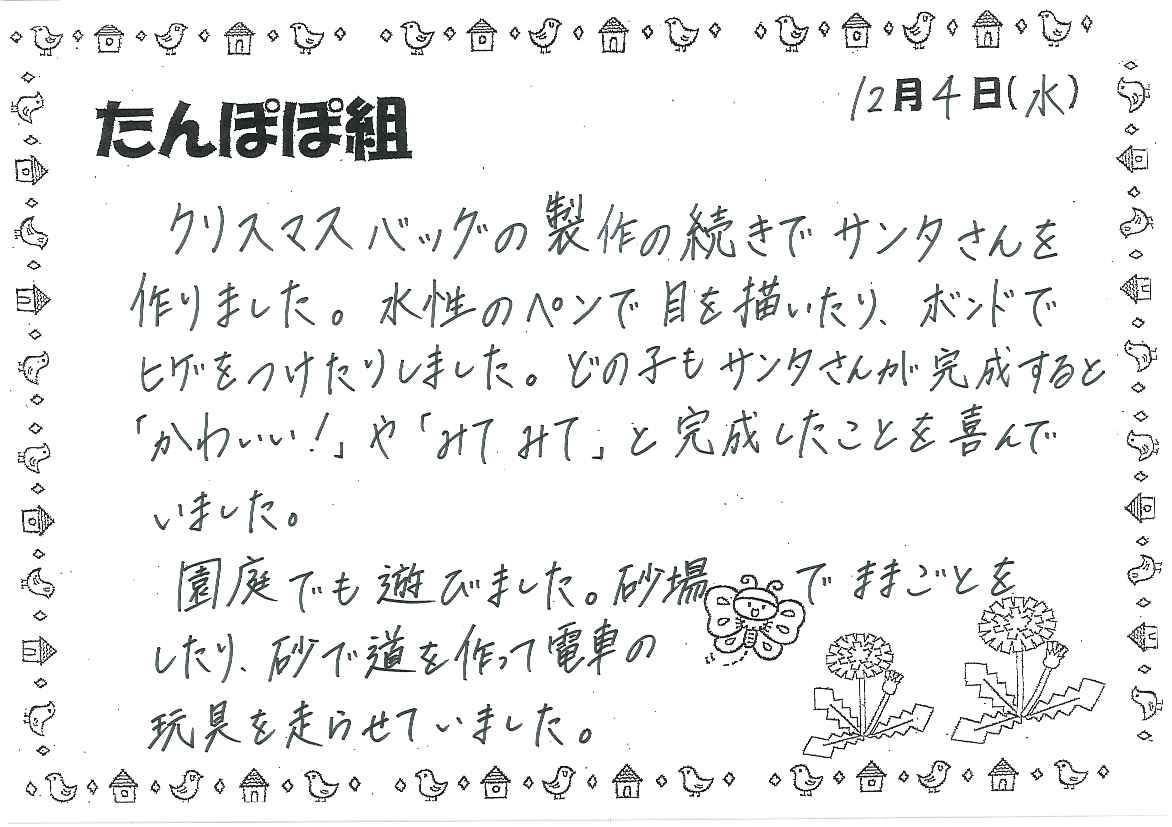 たんぽぽ組
12月4日(水)
クリスマスバッグの製作の続きでサンタさんを
作りました。水性のペンで目を描いたり、ボンドで
ヒゲをつけたりしました。どの子もサンタさんが完成すると
「かわいい!」や「みてみて」と完成したことを喜んで
いました。
園庭でも遊びました。砂場でままごとを
したり、砂で道を作って電車の
玩具を走らせていました。